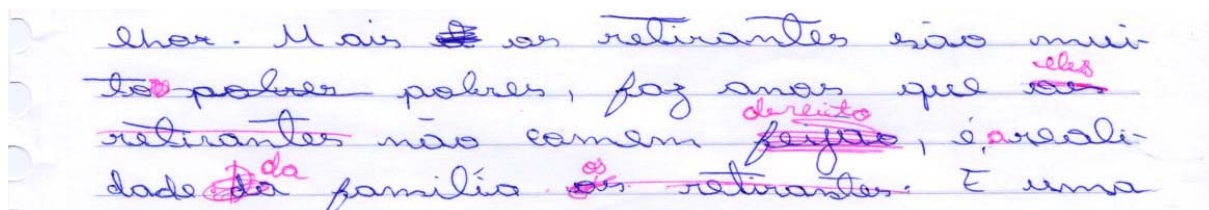 lhor. Mais os retirantes são mui-
to pobres pobres, faz anos que os eles
retirantes não comem feijão dereito, é a reali-
dade da da família os os retirantes. E uma